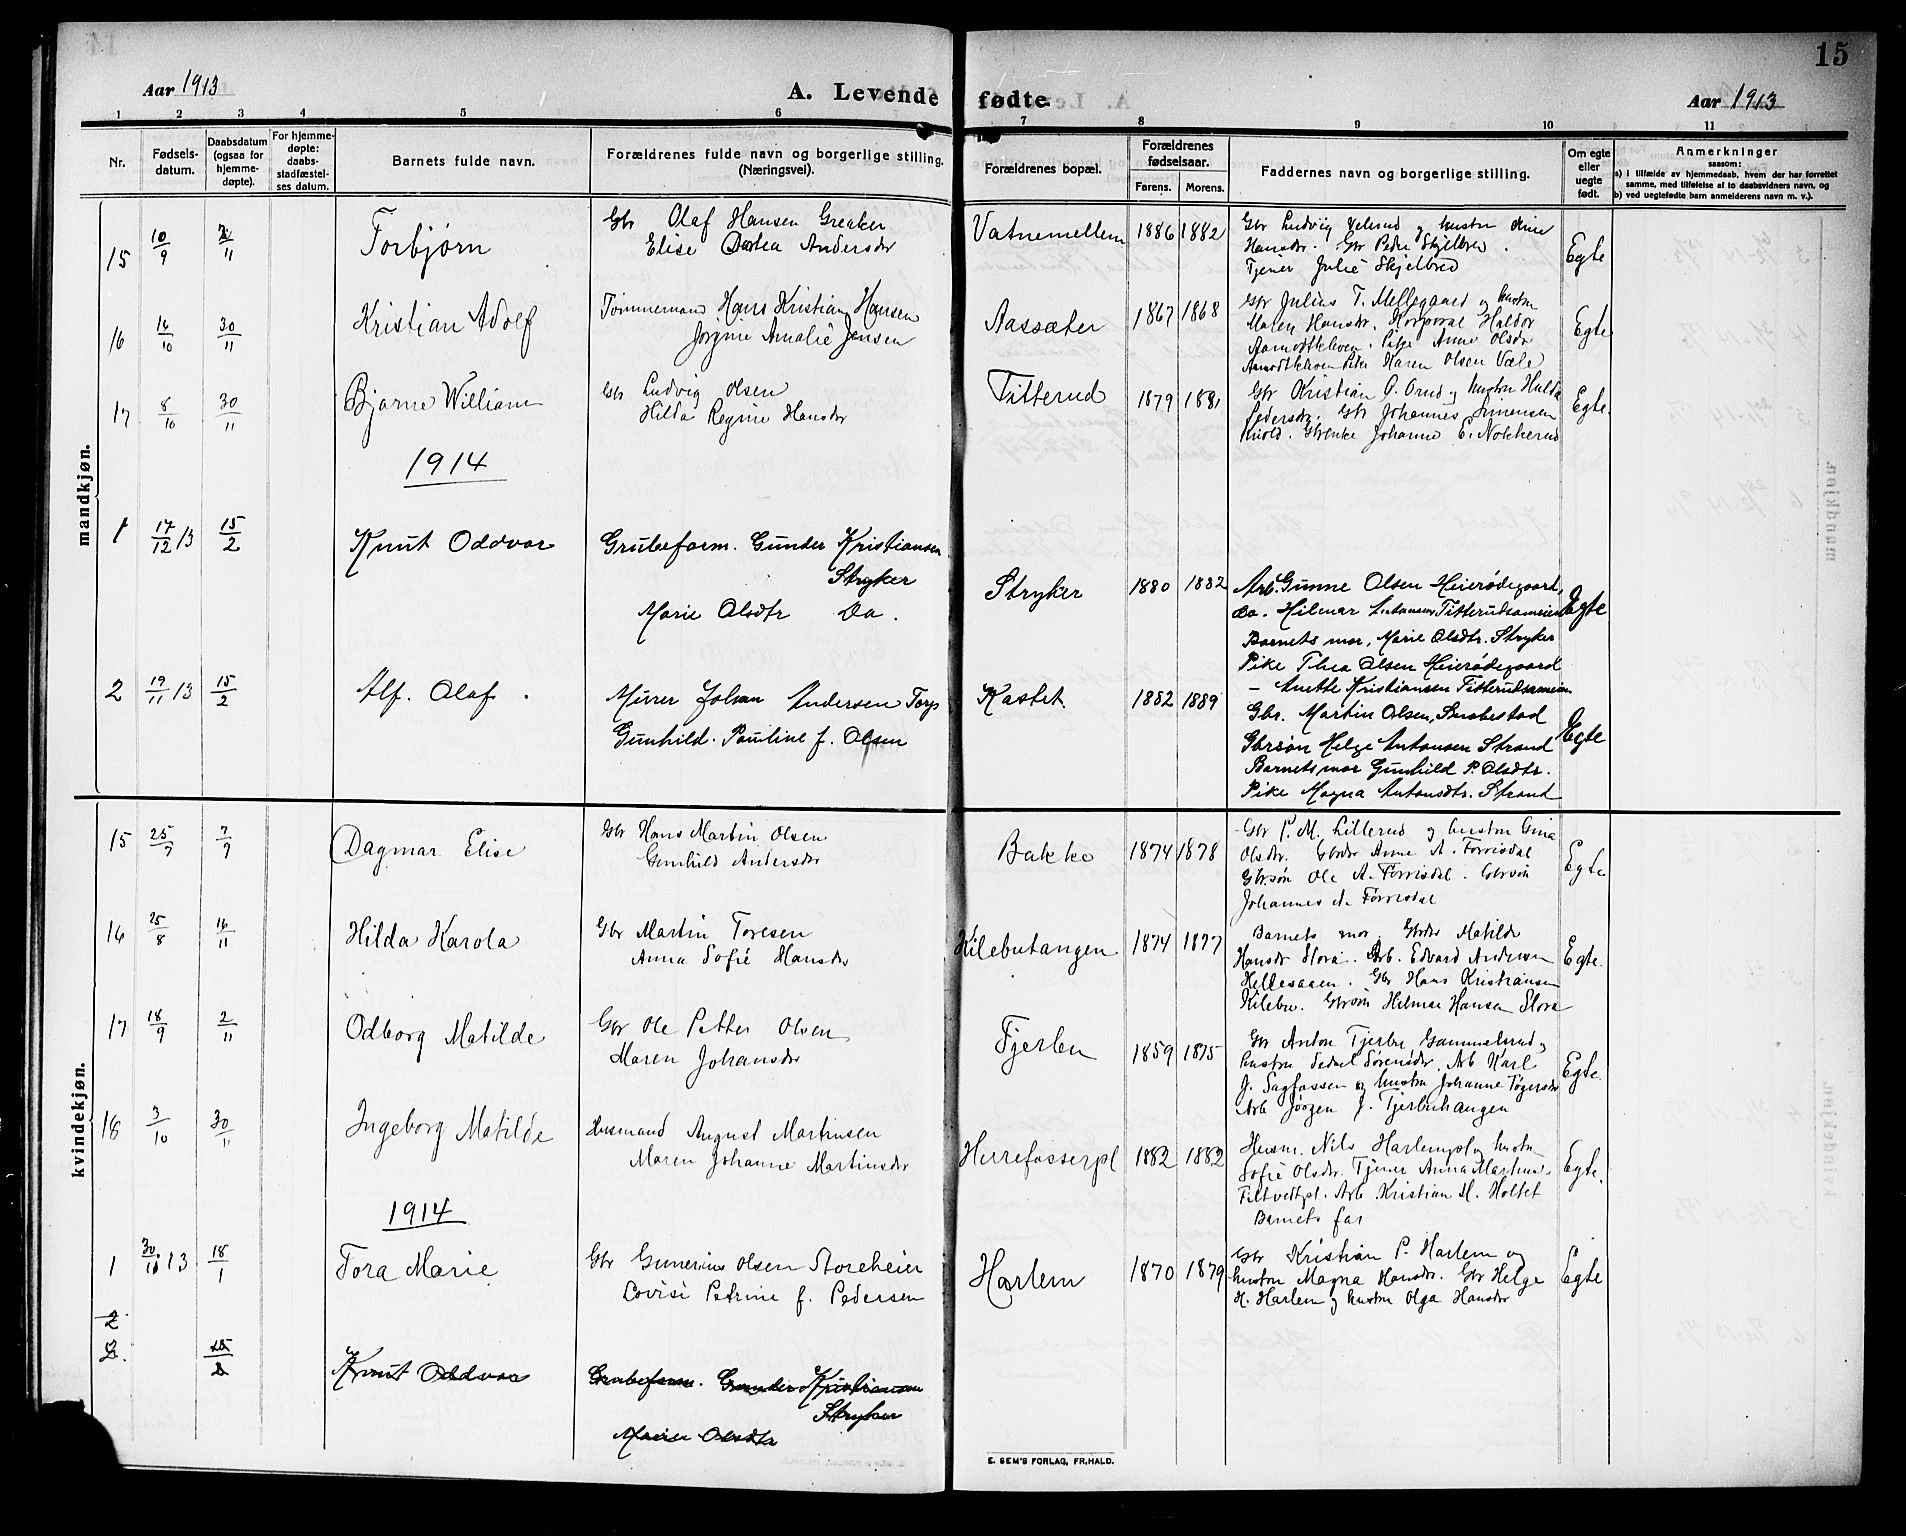 15
Aar 1913
A. Levende fødte.
Aar 1913
1 2 3 4 5 6 7 8 9 10 11
Nr.
Fødsels-
datum.
Daabsdatum
(ogsaa for
hjemme-
døpte).
For hjemme-
døpte:
daabs-
stadfæstel-
ses datum.
Barnets fulde navn.
Forældrenes fulde navn og borgerlige stilling.
(Næringsvei).
Forældrenes bopæl.
Forældrenes
fødselsaar.
Farens. Morens.
Faddernes navn og borgerlige stilling.
Om egte
eller
uegte
født.
Anmerkninger
saasom:
a) i tilfælde av hjemmedaab, hvem der har forrettet
samme, med tilføielse af to daabsvidners navn, og
b) ved uegtefødte barn anmelderens navn m. v.).
mandkjøn.
15 10/9 /11 Torbjørn
Gbr Olaf Hansen Greaker
Elise Dortea Andersdr
Vatnemellem 1886 1882
Gbr Ludvig Velerud og hustru
Hansdr. Gbr Peder Skjelbred.
Tjener Julie Skjelbred
Egte
16 16/10 30/11 Kristian Adolf
Tømmermand Hans Kristian Hansen
Jørgine Amalie Jensen
Aassæter 1867 1868
Gbr Julius T. Mellegaard og hustru
Maren Hansdr. Korporal Haldor
Aamodtkleven. Pike Anne Olsdr
Aamodtkleven Pike Karen Olsen Væle
Egte
17 8/10 30/11 Bjarne William
Gbr Ludvig Olsen
Hilda Regine Hansdr
Titterud 1879 1881
Gbr Kristian O. Orud og hustru Hulda
Pedersdr. Gbr Johannes Simensen
Kiold. Gbrenke Johanne E. Nokkerud
Egte
1914
1 17/12 13 15/2 Knut Oddvar
Grubeform. Gunder Kristiansen
Stryker
Marie Olsdtr Do.
Stryker 1880 1882
Arb. Gunne Olsen Heierødegaard,
do. Hilmar Antonsen Titterudsameien
Barnets mor, Marie Olsdtr. Stryker
Pike Thea Olsen Heierødegaard
– Anette Kristiansen Titterudsameien
Egte
2 19/11 13 15/2 Alf. Olaf.
Murer Johan Andersen Torp
Gunhild. Pauline f. Olsen
Kastet. 1882 1889
Gbr. Martin Olsen, Snobestad
Gbrsøn Helge Antonsen Strand
Barnets mor Gunhild P. Olsdtr.
Pike Magna Antonsdtr. Strand
Egte
kvindekjøn.
15 25/7 7/9 Dagmar Elise
Gbr Hans Martin Olsen
Gunhild Andersdr
Bakke 1874 1878
Gbr P. M. Lillerud og hustru Gina
Olsdr. Gbrdr Anne A. Torrisdal
Gbrsøn Ole A. Torrisdal. Gbrsøn
Johannes A. Torrisdal
Egte
16 25/8 16/11 Hilda Karola
Gbr Martin Toresen
Anna Sofie Hansdr
Kilebutangen 1874 1877
Barnets mor. Gbrdr Matilde
Hansdr Stora. Arb. Edvard Andersen
Hellesaaen. Gbr Hans Kristiansen
Kilebu. Gbrsøn Helmer Hansen Stora
Egte.
17 18/9 2/11 Odborg Matilde
Gbr Ole Petter Olsen
Maren Johansdr
Tjerbu 1859 1875
Gbr Anton Tjerbu Gammelsrud og
hustru Sørensdr. Arb Karl
J. Sagfossen og hustru Johanne Tøgersdr
Arb Jørgen J. Tjerbuhaugen
Egte.
18 3/10 30/11 Ingeborg Matilde
Husmand August Martinsen
Maren Johanne Martinsdr
Herrefosserpl 1882 1882
Husm. Nils Harlempl og hustru
Sofie Olsdr. Tjener Anna Martins.
Filtvedtpl. Arb Kristian M. Holtet
Barnets far
Egte.
1914
1 30/10 13 18/1 Tora Marie
Gbr Gunerius Olsen Storeheier
Lovise Petrine f. Pedersen
Harlem 1870 1879
Gbr Kristian P. Harlem og
hustru Magna Hansdr. Gbr Helge
H. Harlem og hustru Olga Hansdr
Egte
2
2. 15/2 Knut Oddvar
Grubeform. Gunder Kristiansen
Stryker
Marie Olsdtr
E. SEM'S FORLAG, FR.HALD.